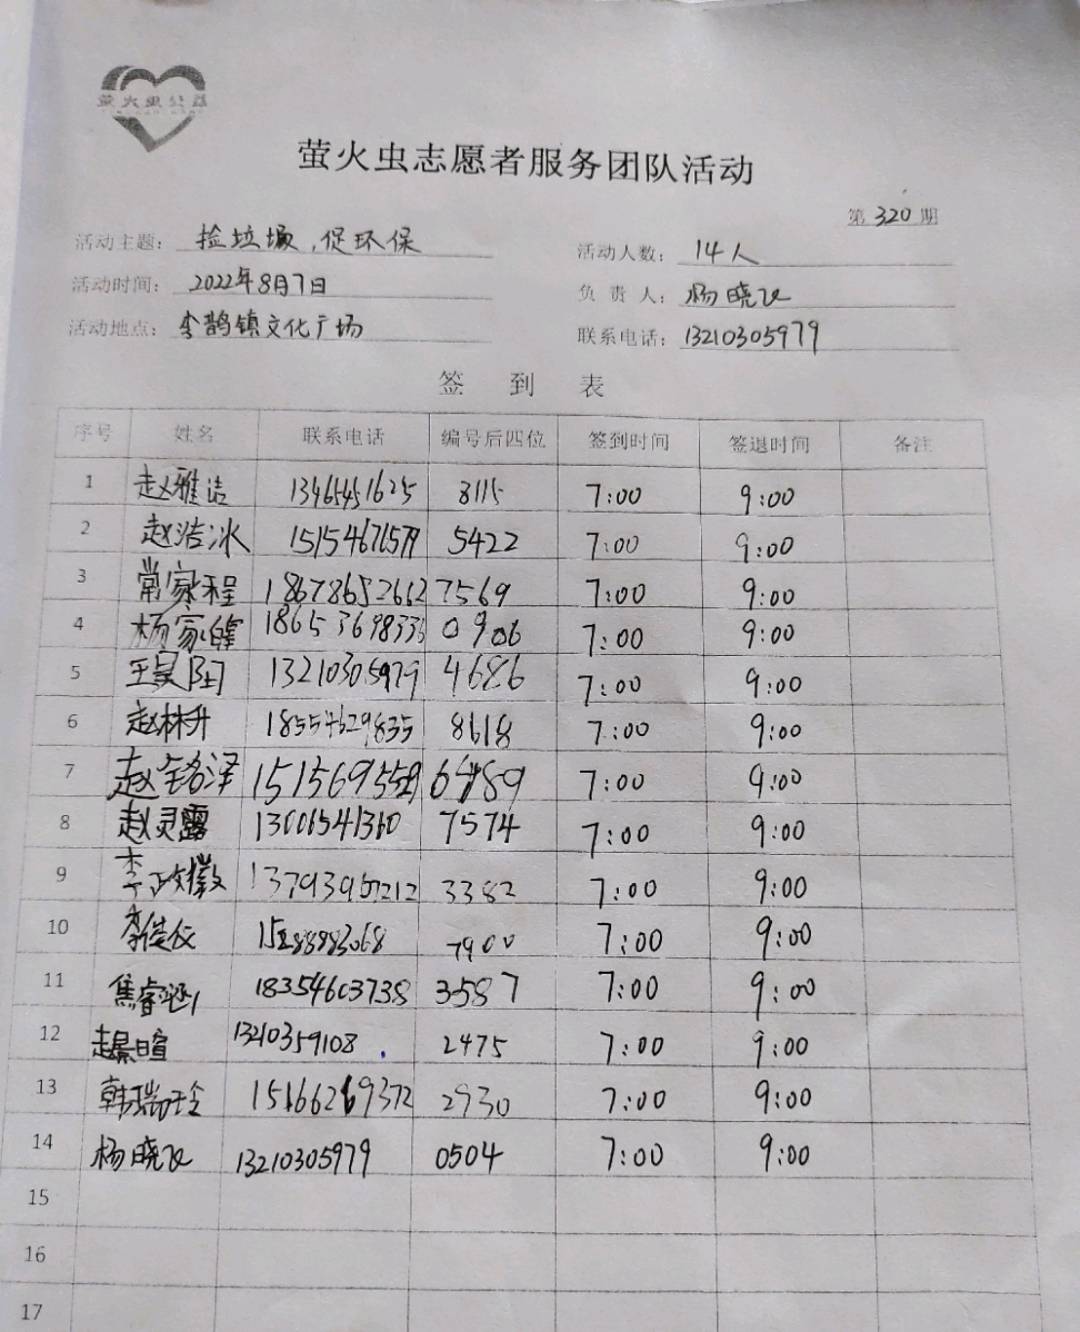 萤火虫公益
萤火虫志愿者服务团队活动
第 320 期
活动主题: 捡垃圾,促环保 活动人数: 14人
活动时间: 2022年8月7日 负责人: 杨晓飞
活动地点: 李鹊镇文化广场 联系电话: 13210305979
签到表
序号 姓名 联系电话 编号后四位 签到时间 签退时间 备注
1 赵雅洁 13465451625 8115 7:00 9:00
2 赵浩冰 15154676579 5422 7:00 9:00
3 常家程 18678652662 7569 7:00 9:00
4 杨家 18653698333 0906 7:00 9:00
5 王昊阳 13210305979 4686 7:00 9:00
6 赵林升 18554629835 8618 7:00 9:00
7 赵铭泽 7:00 9:00
8 赵灵露 13006541360 7574 7:00 9:00
9 李政徽 13793957212 3382 7:00 9:00
10 李佳仪 7900 7:00 9:00
11 焦睿 18354603738 3587 7:00 9:00
12 赵景暄 13210359108 2475 7:00 9:00
13 韩瑞 15166269372 2930 7:00 9:00
14 杨晓飞 13210305979 0504 7:00 9:00
15
16
17